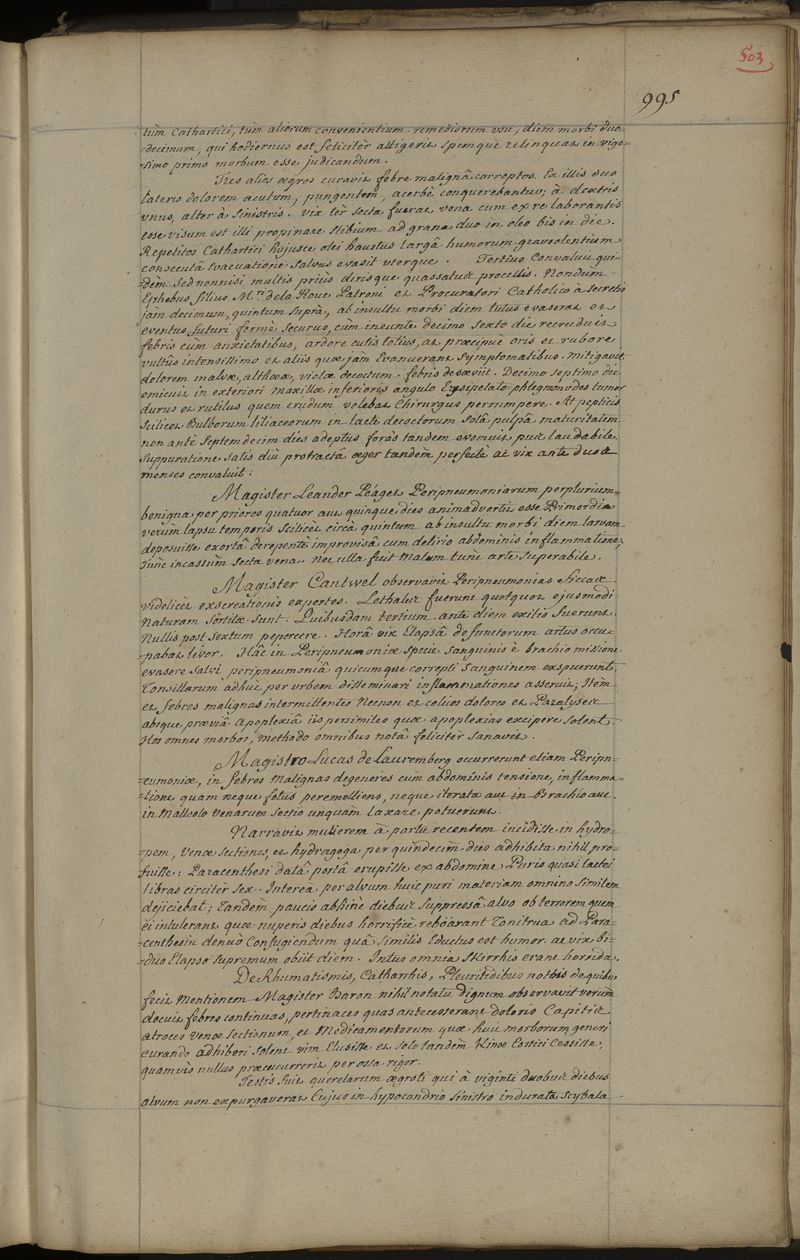 503
995
tùm Cathartici, tùm aliorum convenientium remediorum usu, diem morbi duo
=decimum, qui hodiernus est feliciter attigerit spemque relinquat in vige
=simo primo morbum esse judicandum.
Tres alios ægros curavit febre malignâ correptos. Ex illis duo
lateris dolorem acutum, pungentem, acerbè conquerebantur; à dextris
unus, alter à sinistris. vix ter secta fuerat vena cum ex re laborantis
esse visum est illi propinare stibium ad grana duo in oleo bis in die.
Repetitos Cathartici hujusce olei haustus largâ humorum graveolentium
consecutâ Evacuatione salvus evasit uterque. Tertius Convaluit qui-
=dem sed nonnisi multis priùs dirisque quassatus procellis. Nondum
Ephebus, filius M.ri dela Roue Patroni et Procuratori Catholico à secretis
jam decimum, quintum suprà, ab insultu morbi diem tutus evaserat et
eventus futuri fermè securus, cùm ineunte decimo sexto die recruduit
febris cum anxietatibus, ardore cutis totius, at præcipuè oris et rubore
vultûs intensissimo et aliis quæ jàm Evanuerant symptomatibus. mitigavit
dolorem malvæ, altheæ, violæ decoctum. febris desæviit. Decimo septimo die
emicuit in exteriori maxillæ inferioris angulo Erysipelato-phlegmonodes tumor
durus et rutilus quem crudum volebat Chirurgus perrumpere. At pepticis
scilicet Bulborum liliaceorum in lacte decoctorum solâ pulpâ maturitatem
non antè septemdecim dies adeptus foràs tandem evomuit pus laudabile.
suppuratione satis diù protractâ æger tandem perfectè at vix ante duos
menses convaluit.
Magister Leander Péaget Peripneumoniarum perplurium=
benigna per priores quatuor aut quinque dies animadvertit esse Primordia
verùm lapsu temporis scilicet circà quintum ab insultu morbi diem larvam
deposuisse exortâ derepentè improvisâ cum delirio abdominis inflammatione,
tunc incassùm secta vena. Nec ulla fuit Malum tunc arte superabile.
Magister Cantwel observavit Peripneumonias siccas
videlicet exscreationis expertes. Lethales fuerunt quotquot ejusmodi
Naturam sortitæ sunt. Quibusdam tertium ante diem exitio fuerunt.
Nullis post sextum pepercere. Horâ vix Elapsâ defunctorum artus occu
=pabat livor. Hâc in Peripneumoniæ specie sanguinis è brachio missione
evasere salvi peripneumoniâ quicumque correpti sanguinem exspuerunt.
Tonsillarum adhuc per urbem disseminari inflammationes asseruit; Item
et febres malignas intermittentes Necnon et colicos dolores et Paralyses
absque præviâ apoplexiâ iis persimiles quæ apoplexias excipere solent.
Hos omnes morbos, methodo omnibus notâ feliciter sanavit.
Magistro Lucas de Lauremberg occurrerunt etiam Peripn=
=eumoniæ, in febres Malignas degeneres cum abdominis tensione, inflamma=
=tione quam neque fotus peremolliens, neque iteratæ aut in Brachio aut
in Malleolo venarum sectio unquàm laxare potuerunt.
Narravit mulierem à partu recentem incidisse in hydro=
=pem, Venæ sectiones, et hydragoga per quindecim dies adhibita nihil pro=
fuisse: Paracenthesi datâ portâ erupisse ex abdomine Puris quasi lactei
libras circiter sex. Intereà per alvum huic puri materiam omninò similem
dejiciebat; Tandem paucis abhinc diebus suppressâ alvo ob terrorem quem
ei intulerant quæ nuperis diebus horrificè reboârant Tonitrua ad Para=
=centhesin denuò Confugiendum quâ similis Eductus est humor. at vix bi=
=duo Elapso supremum obiit diem. Intus omnia skirrhis erant horrida.
De Rhumatismis, Catharrhis, Pleuritidibus nothis de quibus
fecit Mentionem Magister Baron nihil notatu dignum observavit verùm
docuit febres continuas, pertinaces quas antecesserant doloris Capitis
atroces Venæ sectionum, et Medicamentorum quæ huic morborum generi
curando adhiberi solent vim Elusisse et solo tandem Kinæ Cortici Cessisse,
quamvis nullus præcucurrerit per ossa rigor.
Testis fuit querelarum ægroti qui à viginti duobus diebus
alvum non expurgaverat Cujus in hypocondrio sinistro indurata scybala